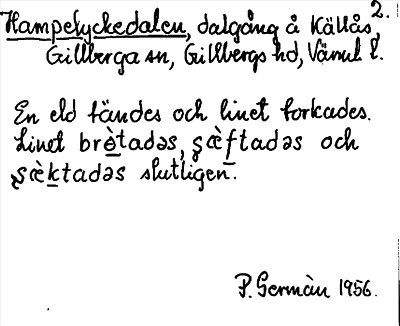 2.
Hampelyckedalen, dalgång å Källås,
Gillberga sn, Gillbergs hd, Värml l.
En eld tändes och linet torkades.
Linet brètadəs, şæ̀ftadəs och
şæ̀ktadəs slutligen.
P. Germàn 1956.